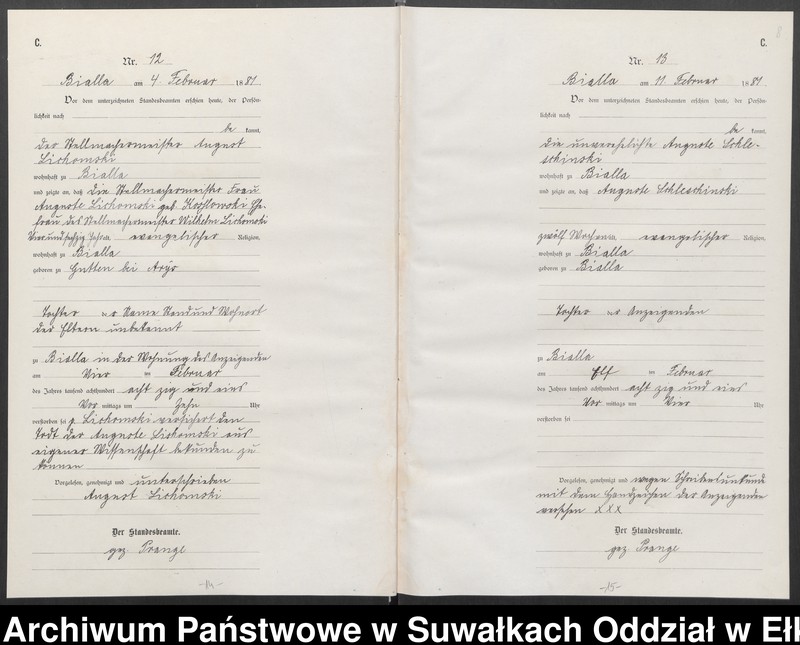 C.
Nr. 12
Bialla am 4. Februar 1881
Vor dem unterzeichneten Standesbeamten erschien heute, der Persön-
lichkeit nach
be kannt,
der Stellmachermeister August
Lichomski
wohnhaft zu Bialla
und zeigte an, daß die Stellmachermeister Frau
Auguste Lichomski geb. Koslowski Ehe-
frau des Stellmachermeister Wilhelm Lichomski
Vierundsechzig Jahr alt, evangelischer Religion,
wohnhaft zu Bialla
geboren zu Gutten bei Arys
Tochter Name Stand und Wohnort
der Eltern unbekannt
zu Bialla in der Wohnung des Anzeigenden
am Vier ten Februar
des Jahres tausend achthundert acht zig und eins
Vor mittags um Zehn Uhr
verstorben sei p. Lichomski versichert den
Todt der Auguste Lichomski aus
eigener Wissenschaft bekunden zu
können
Vorgelesen, genehmigt und unterschrieben
August Lichomski
Der Standesbeamte.
gez. Prange
-14-
C.
Nr. 13
Bialla am 11 Februar 1881
Vor dem unterzeichneten Standesbeamten erschien heute, der Persön-
lichkeit nach
be kannt,
die unverehelichte Auguste Schle-
schinski
wohnhaft zu Bialla
und zeigte an, daß Auguste Schleschinski
zwölf Wochen alt, evangelischer Religion,
wohnhaft zu Bialla
geboren zu Bialla
Tochter Anzeigenden
zu Bialla
am Elf ten Februar
des Jahres tausend achthundert acht zig und eins
Vor mittags um Vier Uhr
verstorben sei
Vorgelesen, genehmigt und wegen Schreibensunkunde
mit dem Handzeichen der Anzeigenden
versehen XXX
Der Standesbeamte.
gez. Prange
-15-
Archiwum Państwowe w Suwałkach Oddział w Ełk